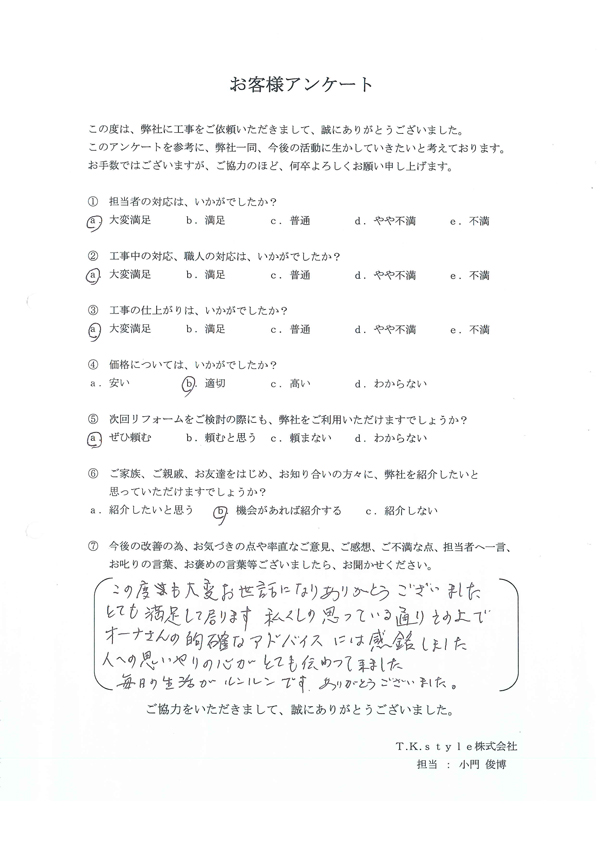 お客様アンケート
この度は、弊社に工事をご依頼いただきまして、誠にありがとうございました。
このアンケートを参考に、弊社一同、今後の活動に生かしていきたいと考えております。
お手数ではございますが、ご協力のほど、何卒よろしくお願い申し上げます。
① 担当者の対応は、いかがでしたか？
a．大変満足 b．満足 c．普通 d．やや不満 e．不満
② 工事中の対応、職人の対応は、いかがでしたか？
a．大変満足 b．満足 c．普通 d．やや不満 e．不満
③ 工事の仕上がりは、いかがでしたか？
a．大変満足 b．満足 c．普通 d．やや不満 e．不満
④ 価格については、いかがでしたか？
a．安い b．適切 c．高い d．わからない
⑤ 次回リフォームをご検討の際にも、弊社をご利用いただけますでしょうか？
a．ぜひ頼む b．頼むと思う c．頼まない d．わからない
⑥ ご家族、ご親戚、お友達をはじめ、お知り合いの方々に、弊社を紹介したいと
思っていただけますでしょうか？
a．紹介したいと思う b．機会があれば紹介する c．紹介しない
⑦ 今後の改善の為、お気づきの点や率直なご意見、ご感想、ご不満な点、担当者へ一言、
お叱りの言葉、お褒めの言葉等ございましたら、お聞かせください。
この度も大変お世話になりありがとうございました
とても満足して居ります 私くしの思っている通りその上で
オーナさんの的確なアドバイスには感銘しました
人への思いやりの心がとても伝わって来ました
毎日の生活がルンルンです。ありがとうございました。
ご協力をいただきまして、誠にありがとうございました。
T.K.style株式会社
担当 ： 小門 俊博